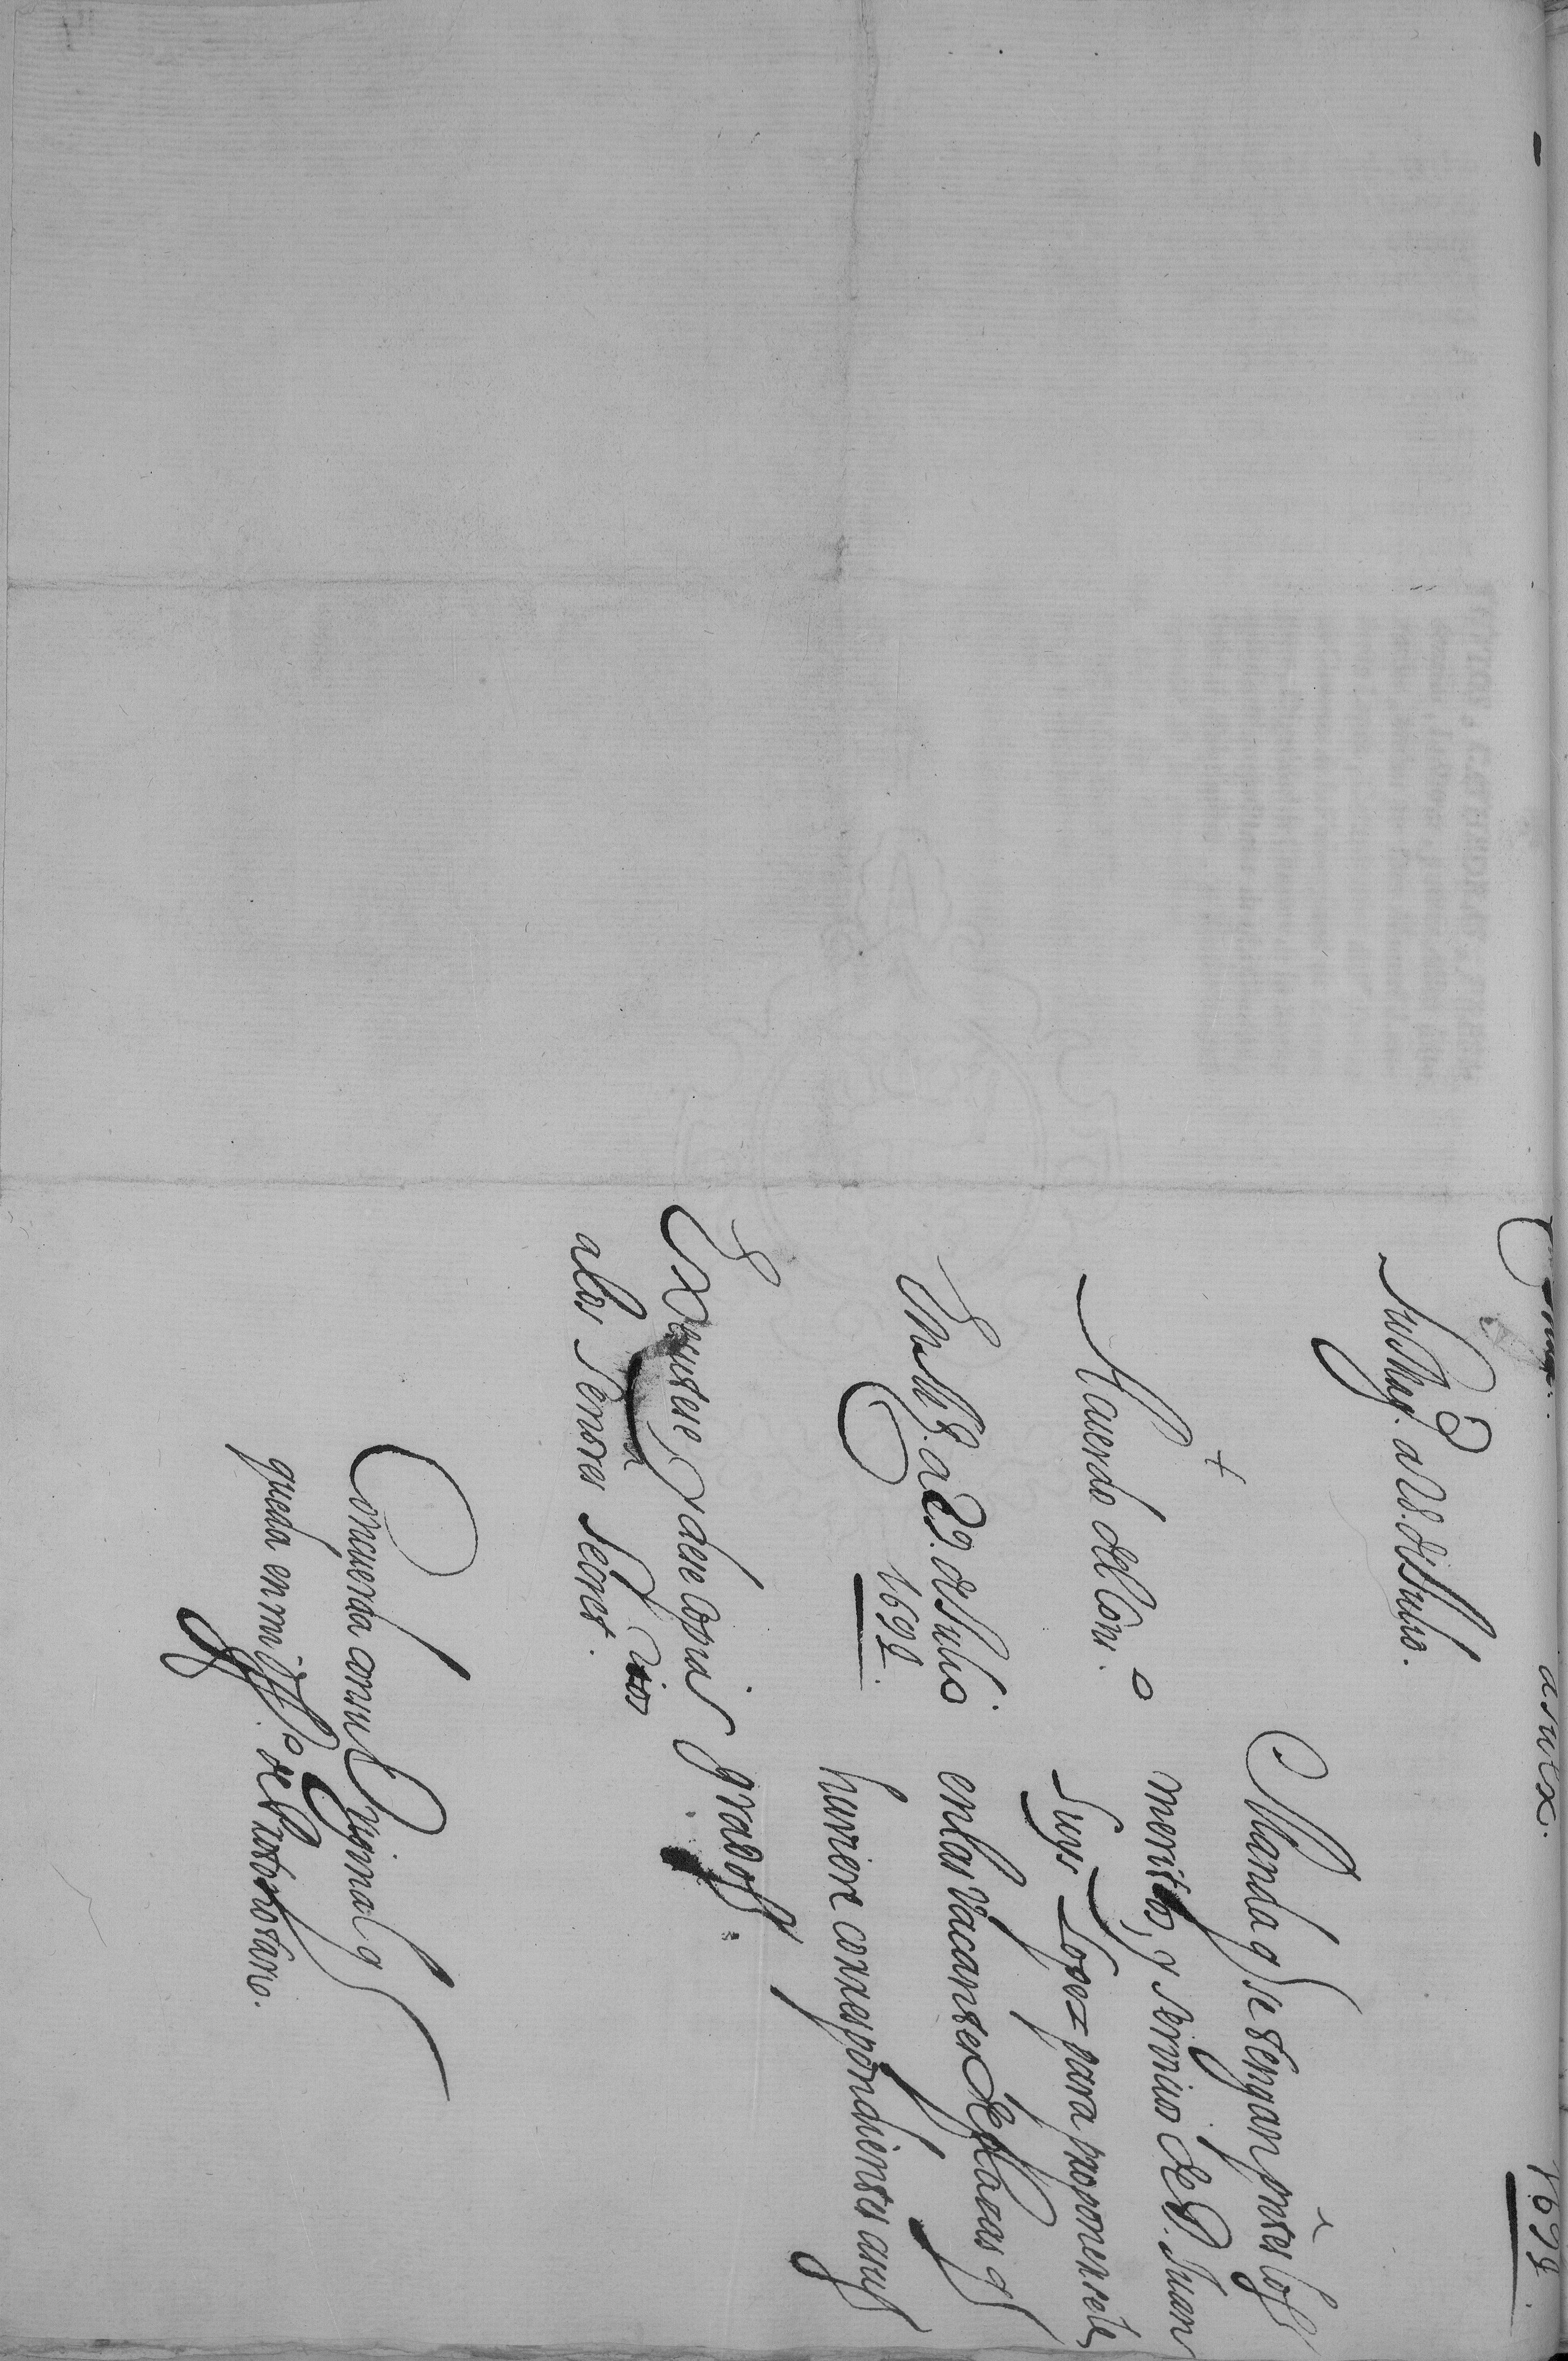 Su Mag.d a 28. de Julio.
1698.
Manda q se tengan preste los
meritos, y servicio de D. Juan
Luys Lopez para proponersele
en las vacantes de Plazas q
huviere correspondientes a sus
grados.
+
Acuerdo del Con.o
En M.d a 29. de Julio
1698.
Executese, y dese copia
a los Señores Secret.rios
Concuerda con su Original q
queda en mi off.o de Protonotario.